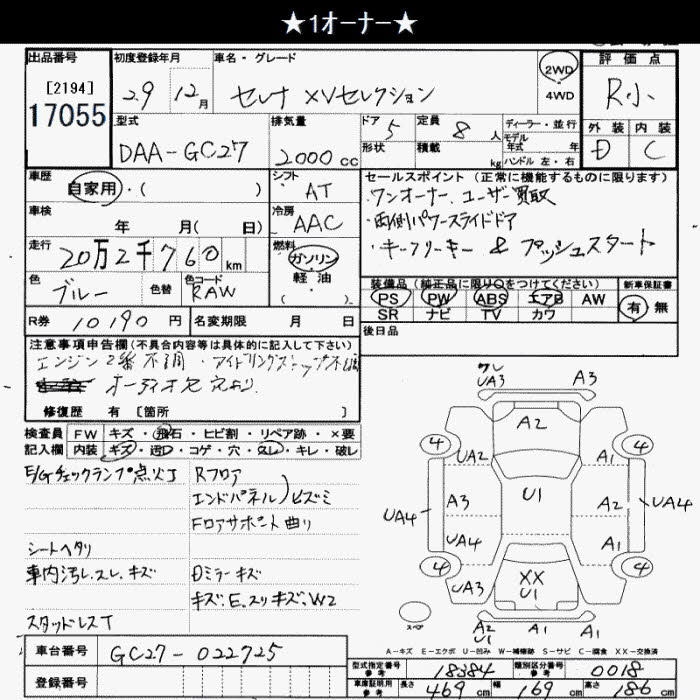 ★1オーナー★
出品番号
[2194]
17055
初度登録年月
29年 12月
車名・グレード
セレナ XVセレクション
2WD
4WD
評価点
R小
外装 内装
D C
型式
DAA-GC27
排気量
2000 cc
ドア 5
形状
定員 8 人
積載 kg
ディーラー・並行
モデル年式 年
ハンドル 左・右
車歴
自家用・( )
シフト
AT
車検
年 月( 日)
冷房
AAC
走行
20万2千760 km
燃料
ガソリン
軽・油
( )
色
ブルー
色替
色コード
RAW
R券 10190 円
名変期限 月 日
セールスポイント(正常に機能するものに限ります)
・ワンオーナー、ユーザー買取
・両側パワースライドドア
・キーフリーキー & プッシュスタート
装備品(純正品に限り○をつけてください)
PS PW ABS エアB AW
SR ナビ TV カワ
新車保証書
有 無
後日品
注意事項申告欄(不具合内容等は具体的に記入して下さい)
エンジン2番不調・アイドリングストップ不良
オーディオ欠 穴あり.
修復歴 有 [箇所 ]
検査員 FW キズ・飛石・ヒビ割・リペア跡・×要
記入欄 内装 キズ・汚レ・コゲ・穴・スレ・キレ・破レ
E/Gチェックランプ点火J
シートヘタリ
車内汚レ.スレ.キズ
スタッドレスT
Rフロア
エンドパネル)ヒズミ
Fロアサポート曲り
Dミラーキズ
キズ、E、スリキズ、W2
ワレ
UA3 A3
A2
4 4
UA2 A1
U1
UA4 A3 A2 UA4
UA4 A1
4 4
UA3 XX
U1
A2 A1 A1
U1
スペア
A-キズ E-エクボ U-凹み W-補修跡 S-サビ C-腐食 XX-交換済
車台番号 GC27-022725
登録番号
型式指定番号 参考 18384
類別区分番号 参考 0018
車庫証明用 参考 長さ 469 cm 幅 169 cm 高さ 186 cm